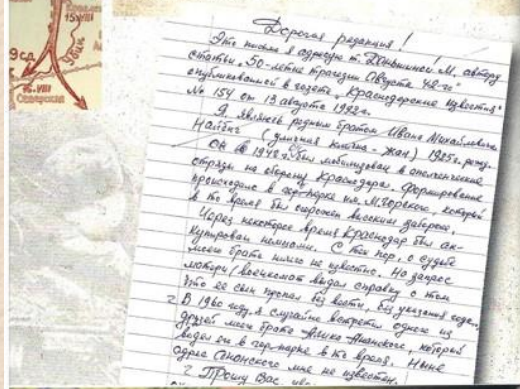 15.VIII
9 сд
15.VIII
Северская
Дорогая редакция!
Это письмо я адресую т. Доньшиной М., автору
статьи „50-летие трагедии Августа 42-го"
опубликованной в газете „Краснодарские известия"
№ 154 от 13 августа 1992г.
Я являюсь родным братом Ивана Михайловича
(уличная кличка - Жан) 1925г. рожд.
Он в 1942г. был мобилизован в ополченческие
отряды на оборону Краснодара. Формирование
происходило в гор-парке им. М. Горького, который
в то время был огорожен высоким забором.
Через некоторое время Краснодар был ок-
купирован немцами. С тех пор, о судьбе
моего брата ничего не известно. На запрос
матери, военкомат выдал справку о том
что ее сын пропал без вести, без указания года.
В 1960 году, я случайно встретил одного из
друзей моего брата Алика Ананского, который
видел его в гор-парке в то время. Ныне
адрес Ананского мне не известен.
Прошу Вас,